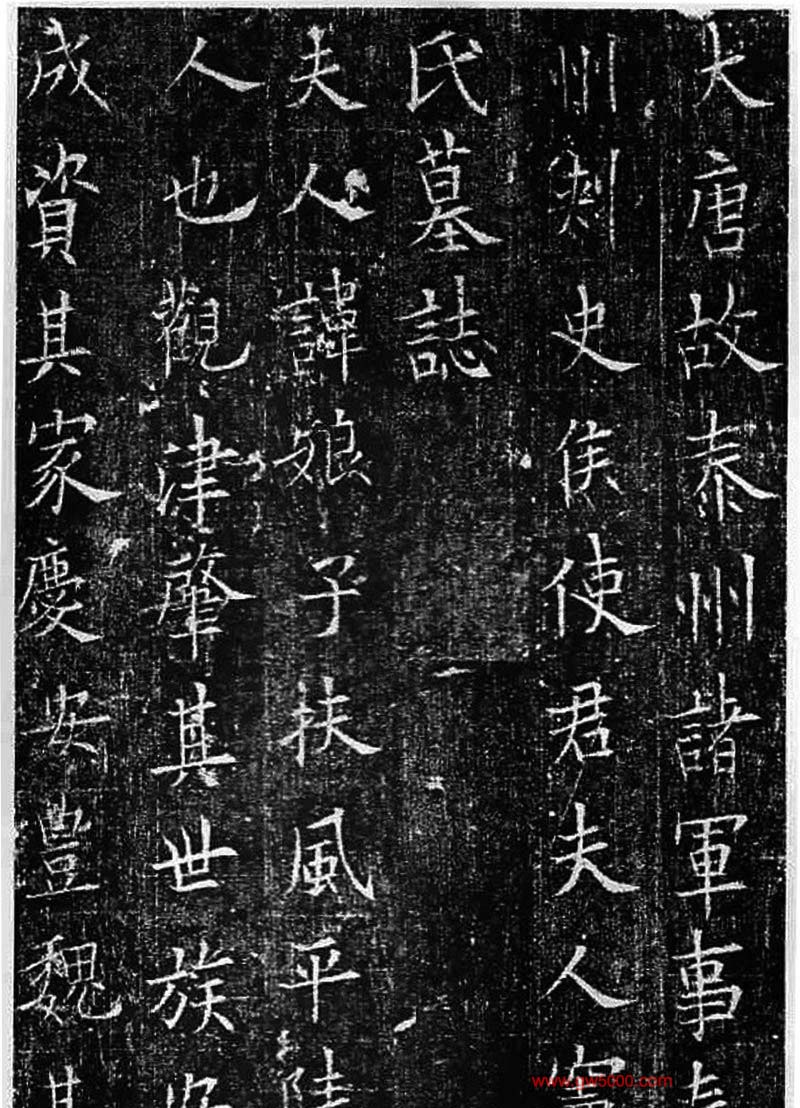 大唐故泰州諸軍事
州刺史侯使君夫人竇
氏墓誌
夫人諱娘子扶風平陵
人也觀津肇其世族
成資其家慶安豊魏其
www.gw5000.com